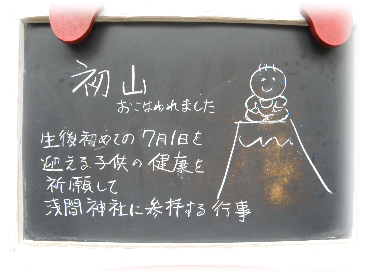 初山
おこなわれました
生後初めての7月1日を
迎える子供の健康を
祈願して
浅間神社に参拝する行事